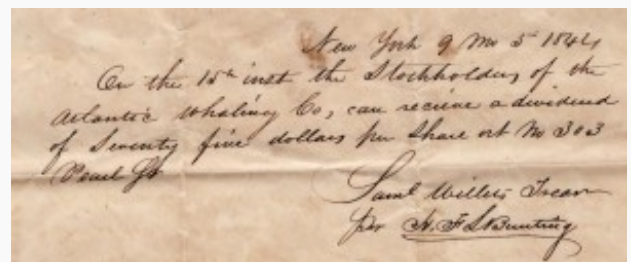 New York 9 Mo 5 1844
On the 15th inst the Stockholders of the
Atlantic Whaling Co, can recieve a dividend
of Seventy five dollars per Share at No 303
Pearl St
Saml Willets Treasr
per N. F. S. Bunting